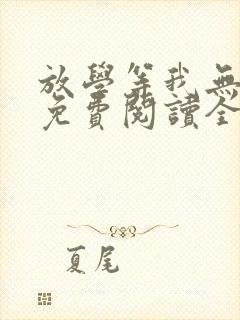 放學等我無
免費閱讀全
夏尾